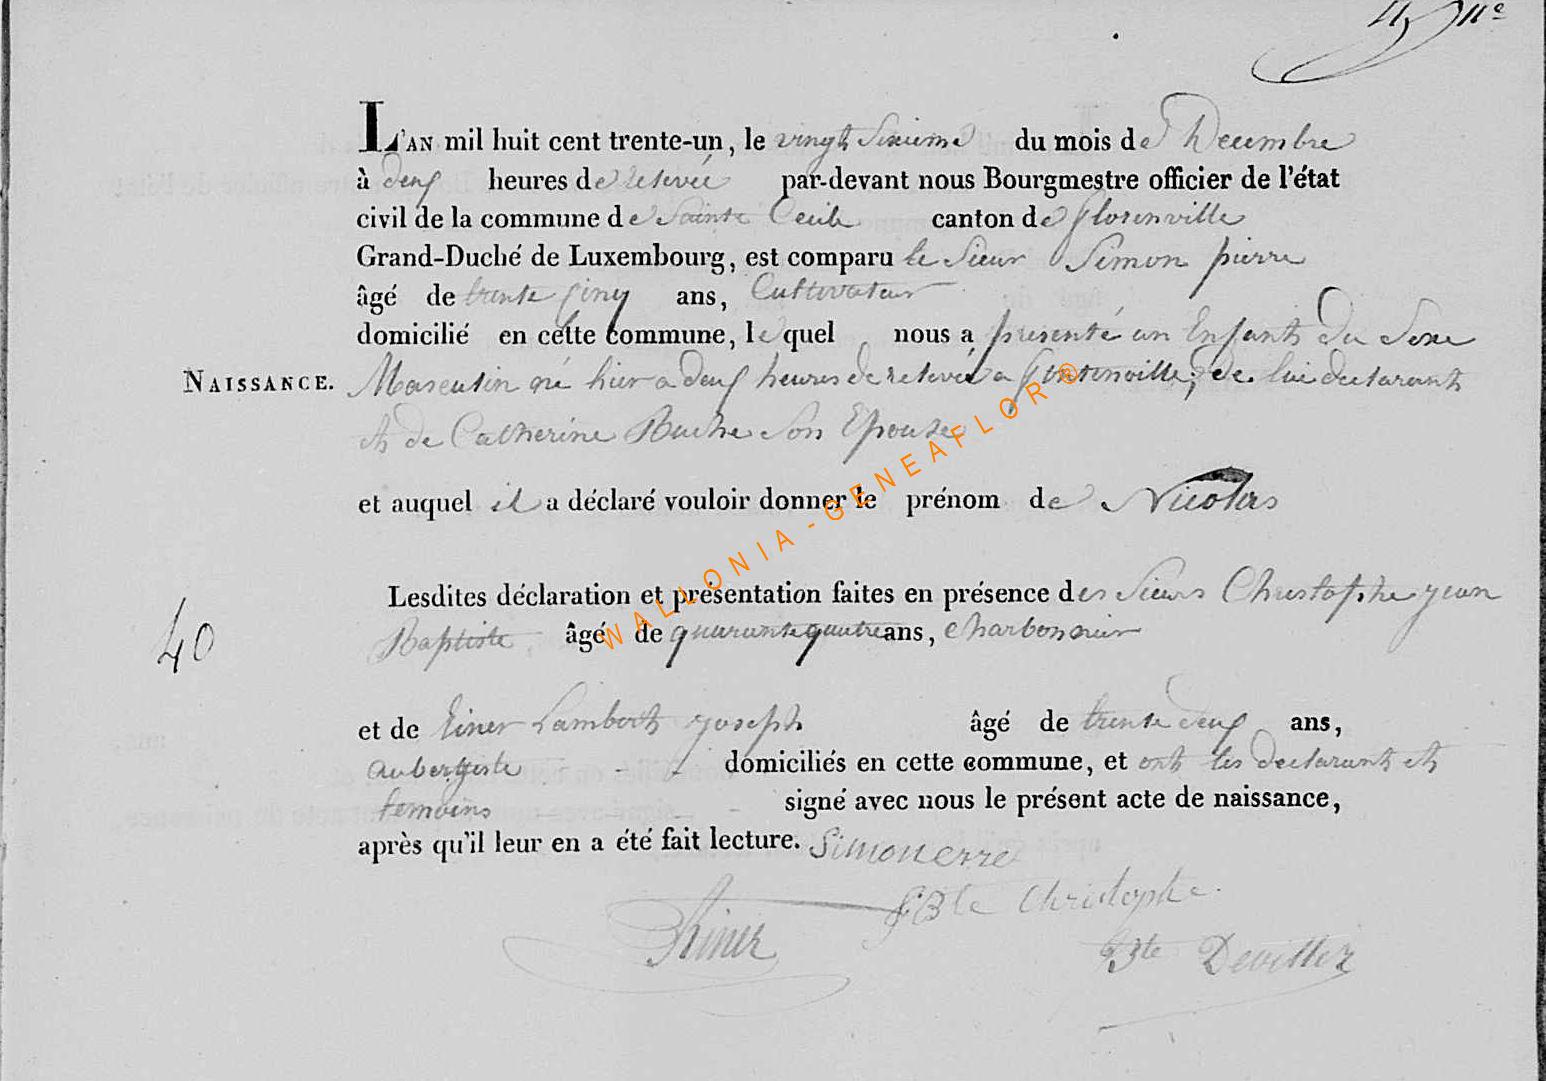 L'AN mil huit cent trente-un, le vingt Sixieme du mois de Decembre
à deux heures de relevée par-devant nous Bourgmestre officier de l'état
civil de la commune de Sainte Cecile canton de florenville
Grand-Duché de Luxembourg, est comparu le Sieur Simon pierre
âgé de trente cinq ans, Cultivateur
domicilié en cette commune, le quel nous a presenté un Enfant du Sexe
NAISSANCE. Masculin né hier a deux heures de relevée a fontenoille, de lui declarant
et de Catherine Buche Son Epouse
et auquel il a déclaré vouloir donner le prénom de Nicolas
Lesdites déclaration et présentation faites en présence des Sieurs Christophe jean
40
Baptiste âgé de quarante quatre ans, charbonnier
et de Einer Lambert joseph âgé de trente deux ans,
aubergiste domiciliés en cette commune, et ont les declarant et
temoins signé avec nous le présent acte de naissance,
après qu'il leur en a été fait lecture.
JBte Christophe
Bte Devillez
WALLONIA-GENEAFLOR®